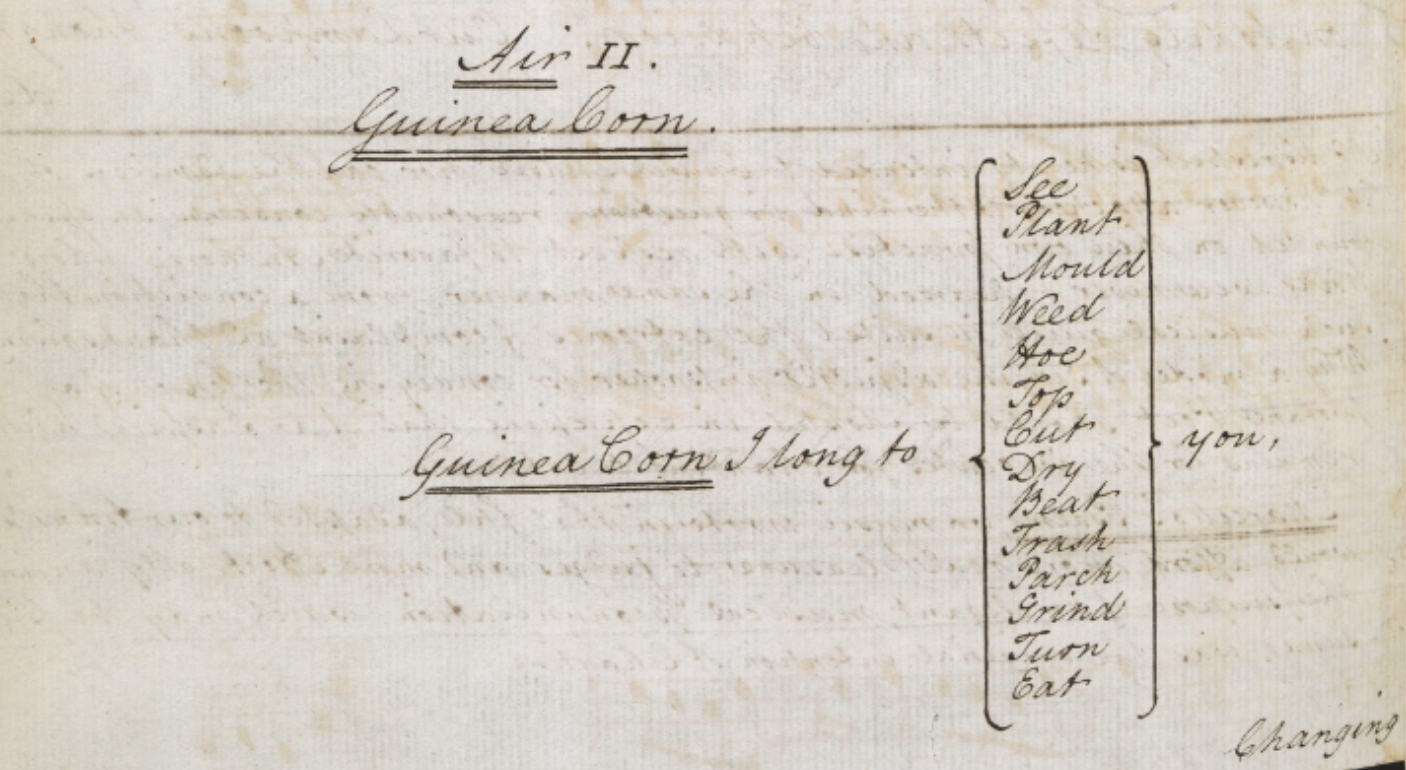 Air II.
Guinea Corn.
See
Plant
Mould
Weed
Hoe
Top
Guinea Corn I long to Cut you,
Dry
Beat
Trash
Parch
Grind
Turn
Eat
Changing